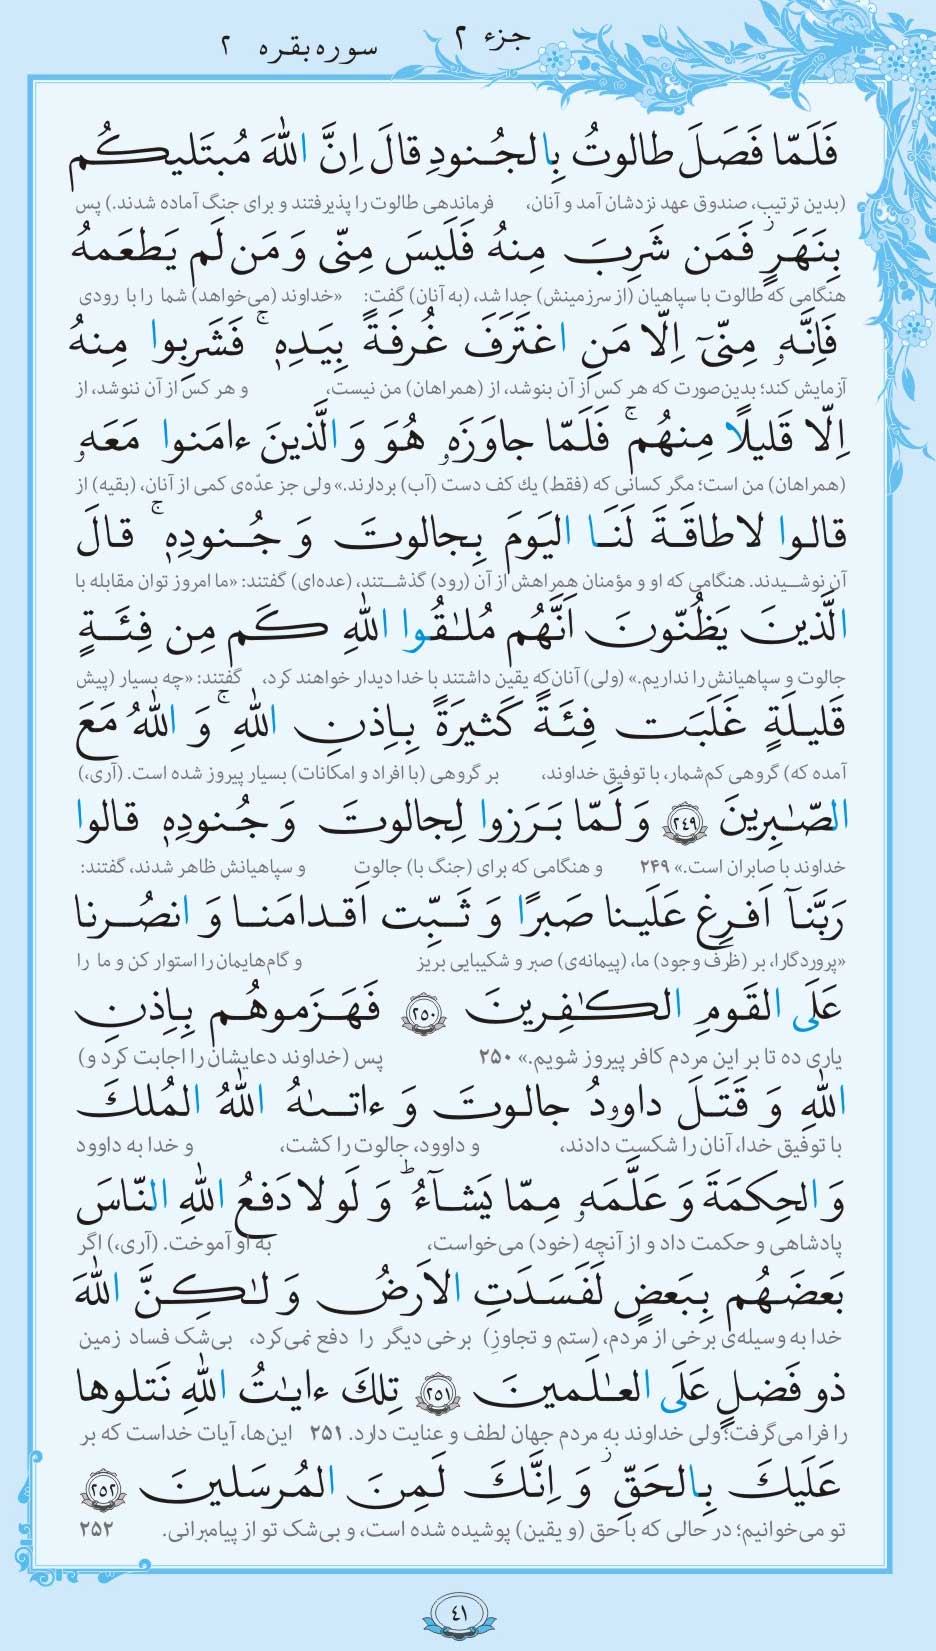 جزء ۲
سوره بقره ۲
فَلَمّا فَصَلَ طالوتُ بِالجُنودِ قالَ اِنَّ اللّٰهَ مُبتَليكُم
(بدین ترتیب، صندوق عهد نزدشان آمد و آنان، فرماندهی طالوت را پذیرفتند و برای جنگ آماده شدند.) پس
بِنَهَرٍ ۫ فَمَن شَرِبَ مِنهُ فَلَيسَ مِنّى وَ مَن لَم يَطعَمهُ
هنگامی که طالوت با سپاهیان (از سرزمینش) جدا شد، (به آنان) گفت: «خداوند (می‌خواهد) شما را با رودی
فَاِنَّهٗ مِنّىٓ اِلّا مَنِ اغتَرَفَ غُرفَةً بِيَدِهٖ ۚ فَشَرِبوا مِنهُ
آزمایش کند؛ بدین‌صورت که هر کس از آن بنوشد، از (همراهان) من نیست، و هر کس از آن ننوشد، از
اِلّا قَليلًا مِنهُم ۚ فَلَمّا جاوَزَهٗ هُوَ وَ الَّذينَ ءامَنوا مَعَهٗ
(همراهان) من است؛ مگر کسانی که (فقط) یك کف دست (آب) بردارند.» ولی جز عدّه‌ی کمی از آنان، (بقیه) از
قالوا لا طاقَةَ لَنَا اليَومَ بِجالوتَ وَ جُنودِهٖ ۚ قالَ
آن نوشیدند. هنگامی که او و مؤمنان همراهش از آن (رود) گذشتند، (عده‌ای) گفتند: «ما امروز توان مقابله با
الَّذينَ يَظُنّونَ اَنَّهُم مُلٰقُوا اللّٰهِ كَم مِن فِئَةٍ
جالوت و سپاهیانش را نداریم.» (ولی) آنان‌که یقین داشتند با خدا دیدار خواهند کرد، گفتند: «چه بسیار (پیش
قَليلَةٍ غَلَبَت فِئَةً كَثيرَةً بِاِذنِ اللّٰهِ ۚ وَ اللّٰهُ مَعَ
آمده که) گروهی کم‌شمار، با توفیق خداوند، بر گروهی (با افراد و امکانات) بسیار پیروز شده است. (آری،)
الصّٰبِرينَ ﴿٢٤٩﴾ وَ لَمّا بَرَزوا لِجالوتَ وَ جُنودِهٖ قالوا
خداوند با صابران است.» ۲۴۹ و هنگامی که برای (جنگ با) جالوت و سپاهیانش ظاهر شدند، گفتند:
رَبَّنآ اَفرِغ عَلَينا صَبرًا وَ ثَبِّت اَقدامَنا وَ انصُرنا
«پروردگارا، بر (ظرف وجود) ما، (پیمانه‌ی) صبر و شکیبایی بریز و گام‌هایمان را استوار کن و ما را
عَلَى القَومِ الكٰفِرينَ ﴿٢٥٠﴾ فَهَزَموهُم بِاِذنِ
یاری ده تا بر این مردم کافر پیروز شویم.» ۲۵۰ پس (خداوند دعایشان را اجابت کرد و)
اللّٰهِ وَ قَتَلَ داوودُ جالوتَ وَ ءاتىٰهُ اللّٰهُ المُلكَ
با توفیق خدا، آنان را شکست دادند، و داوود، جالوت را کشت، و خدا به داوود
وَ الحِكمَةَ وَ عَلَّمَهٗ مِمّا يَشآءُ ؕ وَ لَولا دَفعُ اللّٰهِ النّاسَ
پادشاهی و حکمت داد و از آنچه (خود) می‌خواست، به او آموخت. (آری،) اگر
بَعضَهُم بِبَعضٍ لَفَسَدَتِ الاَرضُ وَ لٰكِنَّ اللّٰهَ
خدا به وسیله‌ی برخی از مردم، (ستم و تجاوز) برخی دیگر را دفع نمی‌کرد، بی‌شک فساد زمین
ذو فَضلٍ عَلَى العٰلَمينَ ﴿٢٥١﴾ تِلكَ ءاياتُ اللّٰهِ نَتلوها
را فرا می‌گرفت؛ ولی خداوند به مردم جهان لطف و عنایت دارد. ۲۵۱ این‌ها، آیات خداست که بر
عَلَيكَ بِالحَقِّ ۫ وَ اِنَّكَ لَمِنَ المُرسَلينَ ﴿٢٥٢﴾
تو می‌خوانیم؛ در حالی که با حق (و یقین) پوشیده شده است، و بی‌شک تو از پیامبرانی. ۲۵۲
٤١